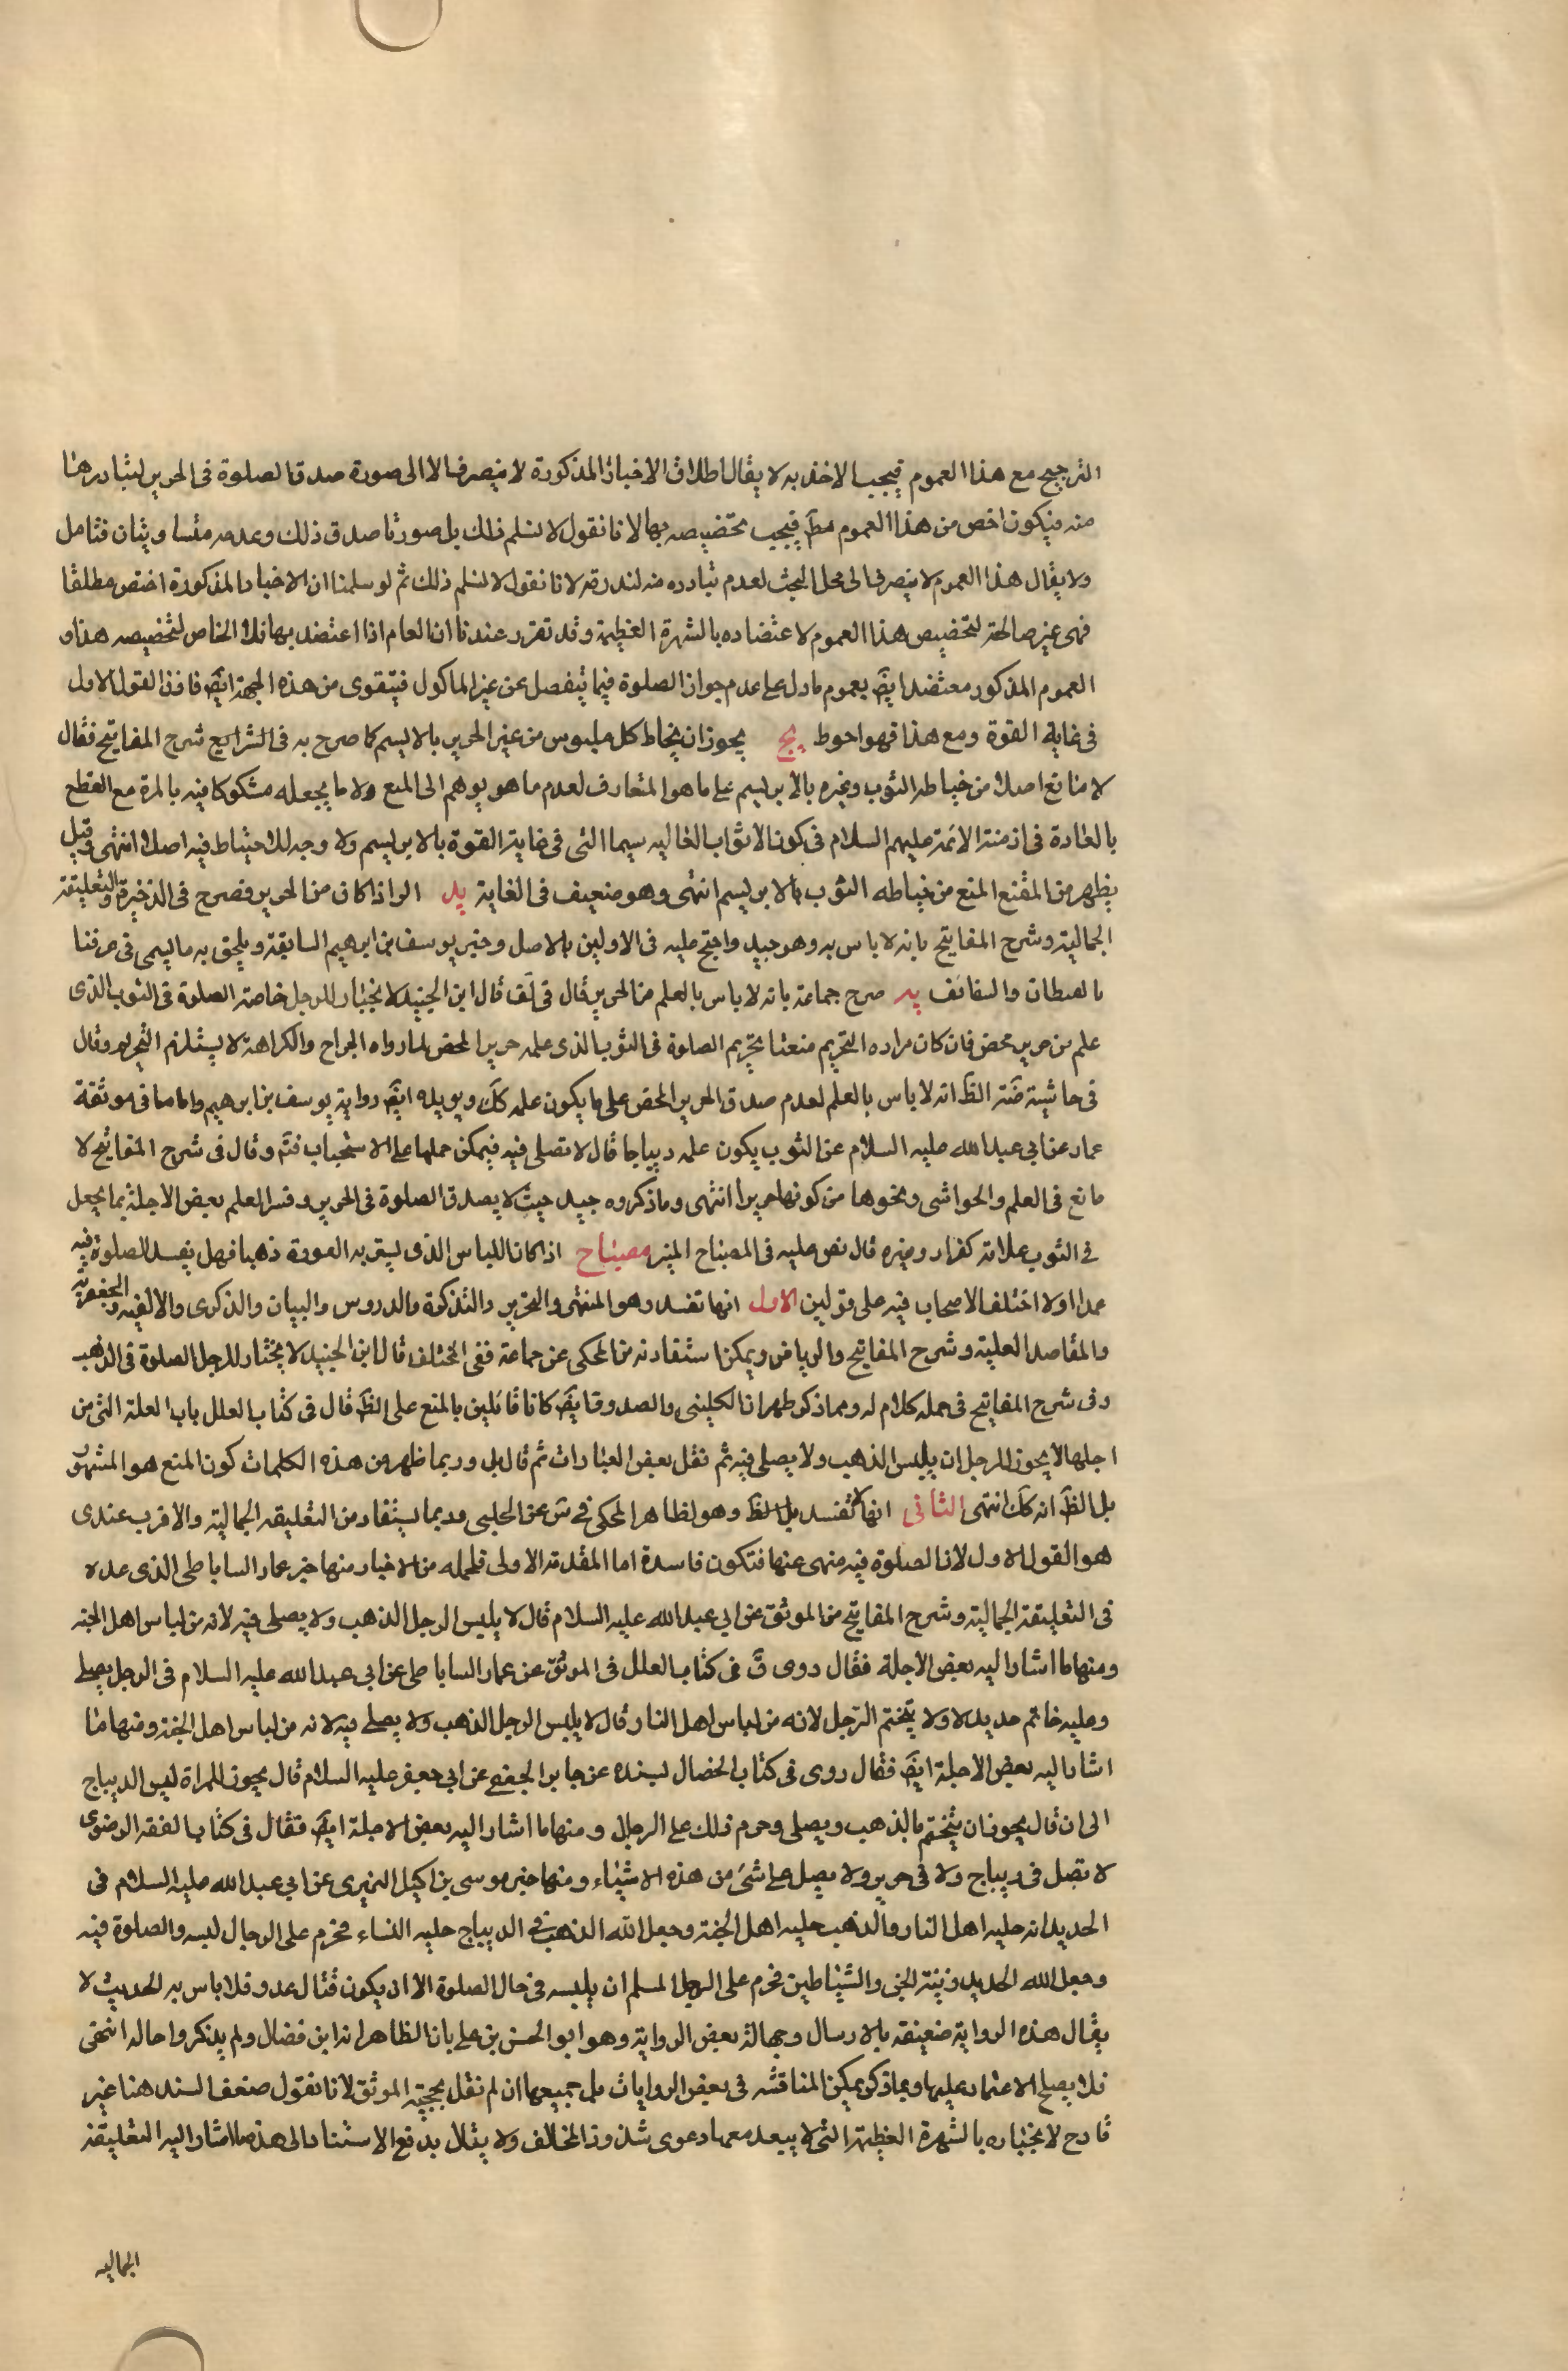 الترجيح مع هذا العموم فيجب الاخذ به لا يقال اطلاق الاخبار المذكورة لا ينصرف الا الى صورة صدق الصلوة فى الحرير لتبادرها
منه فيكون اخص من هذا العموم مطَ فيجب تخصيصه بها لانا نقول لا نسلم ذلك بل صورتا صدق ذلك وعدمه متساويتان فتامل
ولا يقال هذا العموم لا ينصرف الى محل البحث لعدم تبادره منه لندرته لانا نقول لا نسلم ذلك ثم لو سلمنا ان الاخبار المذكورة اخص مطلقا
فهى غير صالحة لتخصيص هذا العموم لاعتضاده بالشهرة العظيمة وقد تقرر عندنا ان العام اذا اعتضد بها فلا الخاص لتخصيصه هذا و
العموم المذكور معتضد ايضَ بعموم ما دل على عدم جواز الصلوة فيما ينفصل عن غير الماكول فيتقوى من هذه الجهة ايضَ فاذن القول الاول
فى غاية القوة ومع هذا فهو احوط يج يجوز ان يخاط كل ملبوس من غير الحرير بالابريسم كما صرح به فى الشرايع شرح المفاتيح فقال
لا مانع اصلا من خياطه الثوب وغيره بالابريسم على ما هو المتعارف لعدم ما هو يوهم الى المنع ولا ما يجعله مشكوكا فيه بالمرة مع القطع
بالعادة فى ازمنة الائمة عليهم السلام فى كون الاثواب الغاليه سيما التى فى غاية القوة بالابريسم ولا وجه للاحتياط فيه اصلا انتهى وقيل
يظهر من المقنع المنع من خياطه الثوب بالابريسم انتهى وهو ضعيف فى الغاية يد الزر اذا كان من الحرير فصرح فى الذخيرة والتعليقة
الجمالية وشرح المفاتيح بانه لا باس به وهو جيد واحتج عليه فى الاولين بالاصل وخبر يوسف بن ابرهيم السابقة ويلحق به ما يسمى فى عرفنا
بالقيطان والسفائف يه صرح جماعة بانه لا باس بالعلم من الحرير قال فى لَف قال ابن الجنيد لا يختار للرجل خاصة الصلوة فى الثوب الذى
علم من حرير محض فان كان مراده التحريم منعنا تحريم الصلوة فى الثوب الذى علمه حرير المحض لما رواه الجراح والكراهة لا يستلزم التحريم وقال
فى حاشية ضَه الظَ انه لا باس بالعلم لعدم صدق الحرير المحض على ما يكون علمه كَك ويويده ايضَ رواية يوسف بن ابرهيم واما ما فى موثقة
عمار عن ابى عبد الله عليه السلام عن الثوب يكون علمه ديباجا قال لا تصلى فيه فيمكن حملها على الاستحباب فتَم وقال فى شرح المفاتيح لا
مانع فى العلم والحواشى ونحوها من كونها حريرا انتهى وما ذكروه جيد حيث لا يصدق الصلوة فى الحرير وفسر العلم بعض الاجلة بما يجعل
فى الثوب علامة كفراد وغيره قال نص عليه فى المصباح المنير مصباح اذا كان اللباس الذى يستر به العورة ذهبا فهل يفسد الصلوة فيه
عمدا اولا اختلف الاصحاب فيه على قولين الاول انها تفسد وهو المنتهى والتحرير والتذكرة والدروس والبيان والذكرى والالفية والجعفرية
والمقاصد العلية وشرح المفاتيح والرياض ويمكن استفادته من المحكى عن جماعة ففى المختلف قال ابن الجنيد لا يختار للرجل الصلوة فى الذهب
وفى شرح المفاتيح فى جمله كلام له ومما ذكر ظهر ان الكلينى والصدوق ايضَ كانا قائلين بالمنع على الظَ قال فى كتاب العلل باب العلة التى من
اجلها لا يجوز للرجل ان يلبس الذهب ولا يصلى فيه ثم نقل بعض العبارات ثم قال بل وربما ظهر من هذه الكلمات كون المنع هو المشهور
بل الظَ انه كَك انتهى الثانى انها لا تفسد بل الظَ وهو لظاهر المحكى فى سَ عن الحلبى وربما يستفاد من التعليقه الجمالية والاقرب عندى
هو القول الاول لان الصلوة فيه منهى عنها فتكون فاسدة اما المقدمة الاولى فلجمله من الاخبار منها خبر عمار الساباطى الذى عده
فى التعليقة الجمالية وشرح المفاتيح من الموثق عن ابى عبد الله عليه السلام قال لا يلبس الرجل الذهب ولا يصلى فيه لانه من لباس اهل الجنه
ومنها ما اشار اليه بعض الاجلة فقال روى قَ فى كتاب العلل فى الموثق عن عمار الساباطى عن ابى عبد الله عليه السلام فى الرجل يصلى
وعليه خاتم حديد لا ولا يتختم الرجل لانه من لباس اهل النار قال لا يلبس الرجل الذهب ولا يصلى فيه لانه من لباس اهل الجنة ومنها ما
اشار اليه بعض الاجلة ايضَ فقال روى فى كتاب الخصال بسنده عن جابر الجعفى عن ابى جعفر عليه السلام قال يجوز للمراة لبس الديباج
الى ان قال يجوز ان يتختم بالذهب ويصلى وحرم ذلك على الرجال ومنها ما اشار اليه بعض الاجلة ايضَ فقال فى كتاب الفقه الرضوى
لا تصل فى ديباج ولا فى حرير ولا يصل على شئ من هذه الاشياء ومنها خبر موسى بن اكيل النميرى عن ابى عبد الله عليه السلام فى
الحديد انه حليه اهل النار والذهب حليه اهل الجنة وجعل الله الذهب فى الديباج حليه النساء فحرم على الرجال لبسه والصلوة فيه
وجعل الله الحديد وزينة الجن والشياطين فحرم على الرجل المسلم ان يلبسه فى حال الصلوة الا ان يكون قتال عدو فلا باس به الحديث لا
يقال هذه الرواية ضعيفه بالارسال وجهالة بعض الرواية وهو ابو الحسن بن على بان الظاهر انه ابن فضال ولم يذكروا حاله انتهى
فلا يصلح الاعتماد عليها وبما ذكر يمكن المناقشه فى بعض الروايات بل جميعها ان لم نقل بحجية الموثق لانا نقول ضعف السند هنا غير
قادح لانجباره بالشهرة العظيمة التى لا يبعد معها دعوى شذوذ المخالف ولا يقال يدفع الاستناد الى هذه ما اشار اليه التعليقة
الجماليه